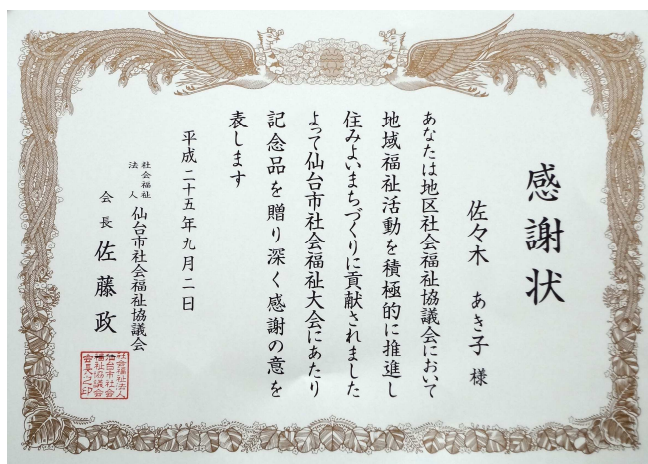 感謝状
佐々木 あき子 様
あなたは地区社会福祉協議会において
地域福祉活動を積極的に推進し
住みよいまちづくりに貢献されました
よって仙台市社会福祉大会にあたり
記念品を贈り深く感謝の意を
表します
平成二十五年九月二日
社会福祉
法人
仙台市社会福祉協議会
会長 佐藤政
社会福祉法人
仙台市社会
福祉協議会
会長之印